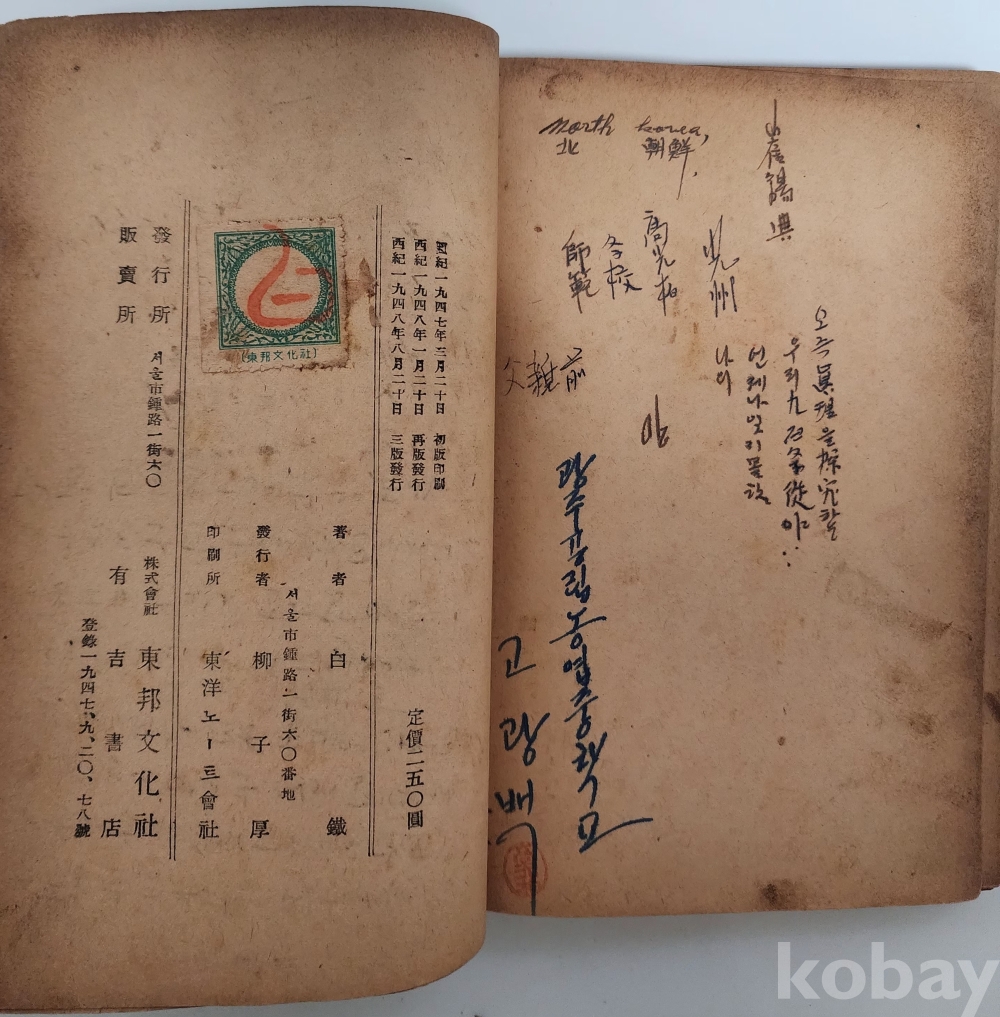 西紀一九四七年三月二十日 初版印刷
西紀一九四八年一月二十日 再版發行
西紀一九四八年八月二十日 三版發行
定價二五〇圓
著者 白鐵
서울市鍾路一街六〇番地
發行者 柳子厚
印刷所 東洋노ー트會社
(東邦文化社)
發行所 서울市鍾路一街六〇 株式會社 東邦文化社
販賣所 有吉書店
登錄一九四七、九、二〇、七八號
North Korea,
北 朝鮮,
오즉 眞理를 探究할
언제나 잊지 못할
나의
光州
高光栢
師範
父親前
광주공립농업중학교
고광백
kobay